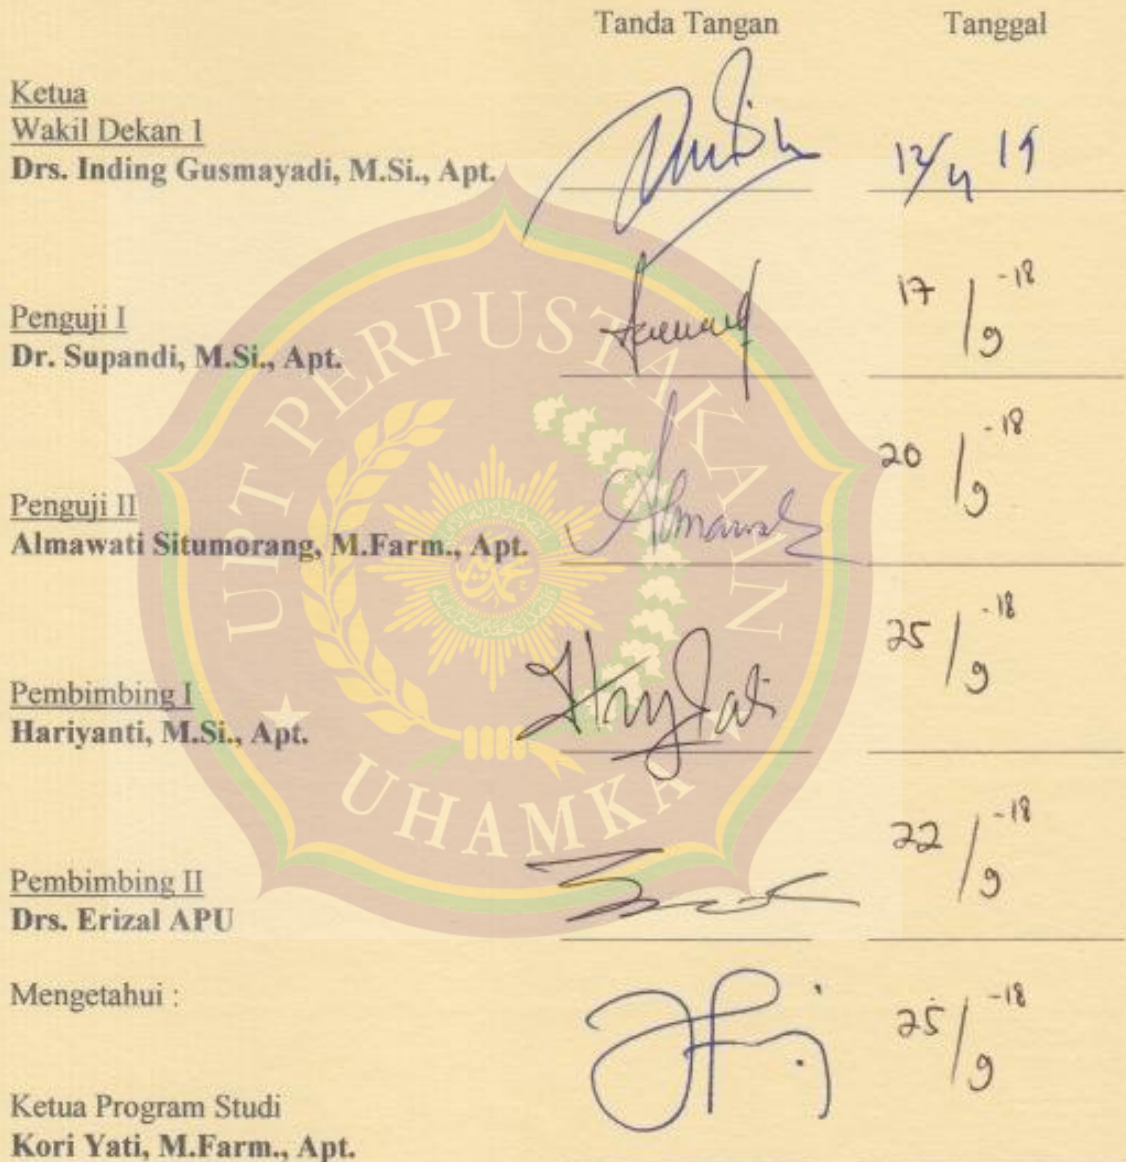 Tanda Tangan Tanggal
Ketua
Wakil Dekan 1
Drs. Inding Gusmayadi, M.Si., Apt.
12/4 19
Penguji I
Dr. Supandi, M.Si., Apt.
17/9 -18
Penguji II
Almawati Situmorang, M.Farm., Apt.
20/9 -18
Pembimbing I
Hariyanti, M.Si., Apt.
25/9 -18
Pembimbing II
Drs. Erizal APU
22/9 -18
Mengetahui :
25/9 -18
Ketua Program Studi
Kori Yati, M.Farm., Apt.
UPT PERPUSTAKAAN
UHAMKA